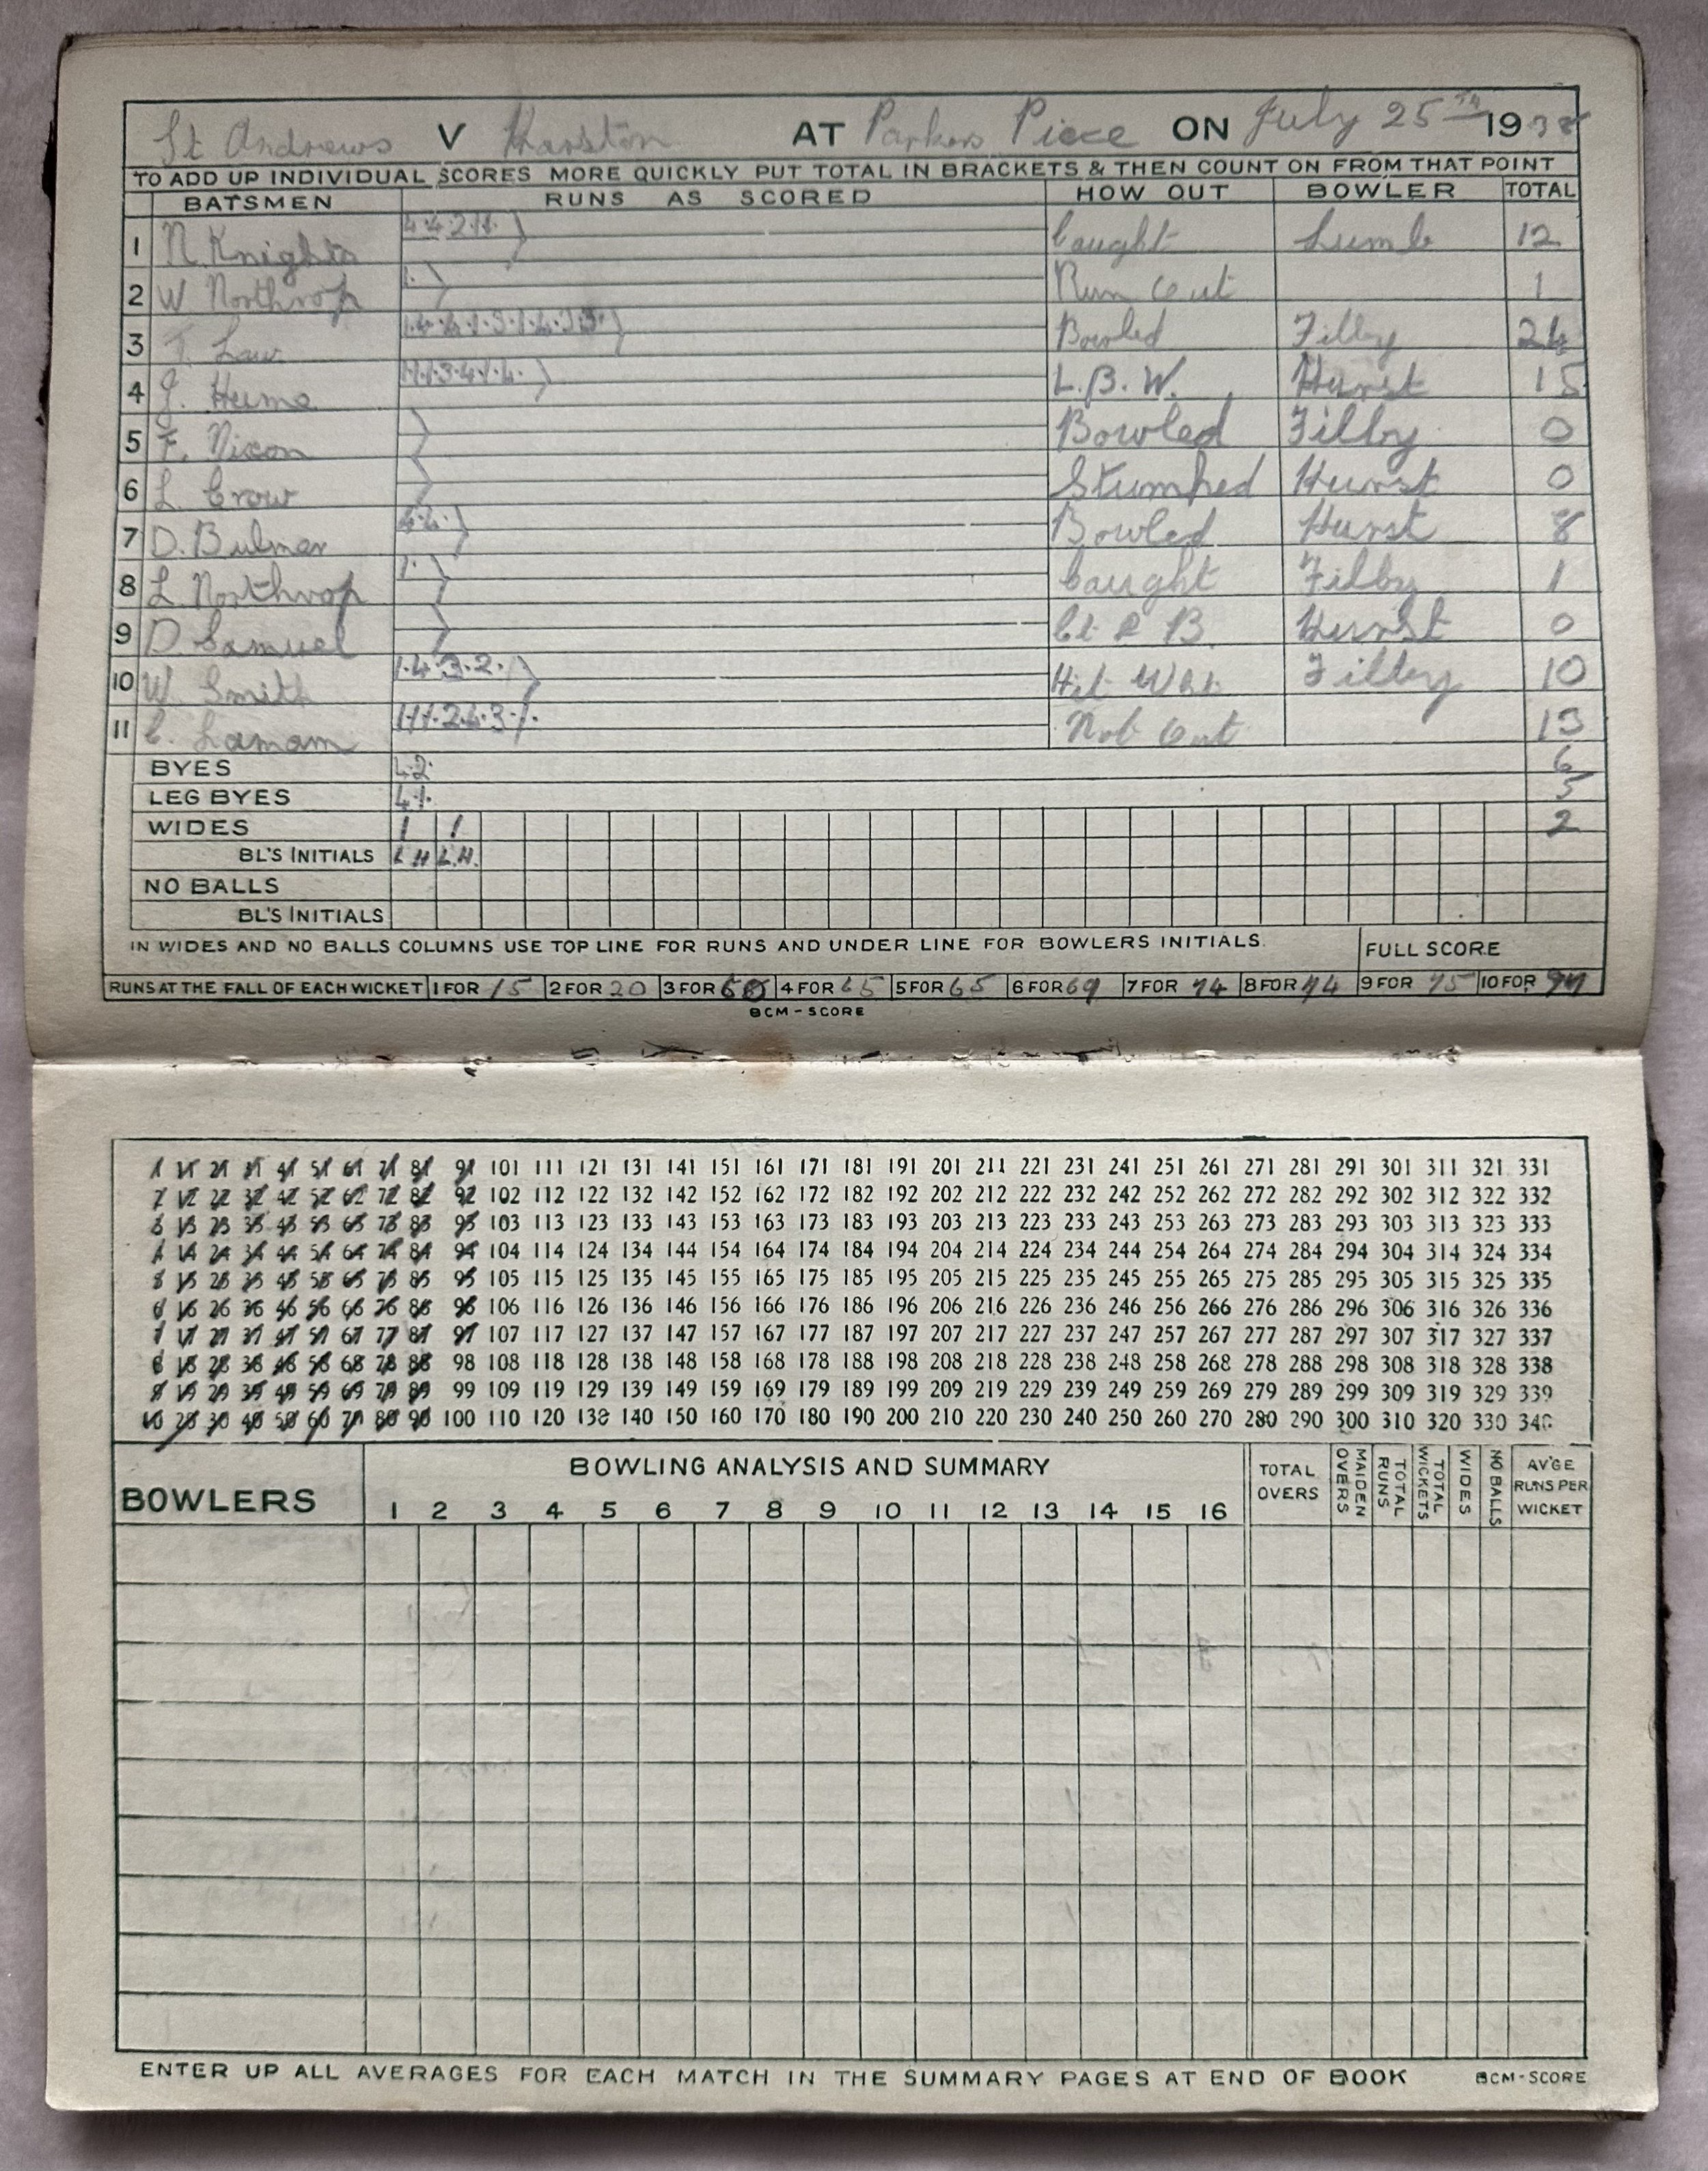 St Andrews V Harston AT Parkers Piece ON July 25TH 1938
TO ADD UP INDIVIDUAL SCORES MORE QUICKLY PUT TOTAL IN BRACKETS & THEN COUNT ON FROM THAT POINT
BATSMEN RUNS AS SCORED HOW OUT BOWLER TOTAL
1 N. Knights 4.4.2.1.1. Caught Lumb 12
2 W Northrop 1. Run Out 1
3 T. Law 1.4.4.1.3.1.4.3.3. Bowled Filby 24
4 J. Hume 1.1.1.3.4.1.4. L.B.W. Hurst 15
5 F. Nixon Bowled Filby 0
6 L. Crow Stumped Hurst 0
7 D. Bulmer 4.4. Bowled Hurst 8
8 L Northrop 1. Caught Filby 1
9 D Samuel Ct & B. Hurst 0
10 W. Smith 1.4.3.2. Hit Wkt. Filby 10
11 C. Laman 1.1.1.2.4.3.1. Not Out 13
BYES 4.2. 6
LEG BYES 4.1. 5
WIDES 1 1 2
BL'S INITIALS L H L.H.
NO BALLS
BL'S INITIALS
IN WIDES AND NO BALLS COLUMNS USE TOP LINE FOR RUNS AND UNDER LINE FOR BOWLERS INITIALS. FULL SCORE
RUNS AT THE FALL OF EACH WICKET 1 FOR 15 2 FOR 20 3 FOR 4 FOR 65 5 FOR 65 6 FOR 69 7 FOR 74 8 FOR 74 9 FOR 75 10 FOR 97
BCM-SCORE
1 11 21 31 41 51 61 71 81 91 101 111 121 131 141 151 161 171 181 191 201 211 221 231 241 251 261 271 281 291 301 311 321 331
2 12 22 32 42 52 62 72 82 92 102 112 122 132 142 152 162 172 182 192 202 212 222 232 242 252 262 272 282 292 302 312 322 332
3 13 23 33 43 53 63 73 83 93 103 113 123 133 143 153 163 173 183 193 203 213 223 233 243 253 263 273 283 293 303 313 323 333
4 14 24 34 44 54 64 74 84 94 104 114 124 134 144 154 164 174 184 194 204 214 224 234 244 254 264 274 284 294 304 314 324 334
5 15 25 35 45 55 65 75 85 95 105 115 125 135 145 155 165 175 185 195 205 215 225 235 245 255 265 275 285 295 305 315 325 335
6 16 26 36 46 56 66 76 86 96 106 116 126 136 146 156 166 176 186 196 206 216 226 236 246 256 266 276 286 296 306 316 326 336
7 17 27 37 47 57 67 77 87 97 107 117 127 137 147 157 167 177 187 197 207 217 227 237 247 257 267 277 287 297 307 317 327 337
8 18 28 38 48 58 68 78 88 98 108 118 128 138 148 158 168 178 188 198 208 218 228 238 248 258 268 278 288 298 308 318 328 338
9 19 29 39 49 59 69 79 89 99 109 119 129 139 149 159 169 179 189 199 209 219 229 239 249 259 269 279 289 299 309 319 329 339
10 20 30 40 50 60 70 80 90 100 110 120 130 140 150 160 170 180 190 200 210 220 230 240 250 260 270 280 290 300 310 320 330 340
BOWLERS BOWLING ANALYSIS AND SUMMARY TOTAL OVERS MAIDEN OVERS TOTAL RUNS TOTAL WICKETS WIDES NO BALLS AV'GE RUNS PER WICKET
1 2 3 4 5 6 7 8 9 10 11 12 13 14 15 16
ENTER UP ALL AVERAGES FOR EACH MATCH IN THE SUMMARY PAGES AT END OF BOOK BCM-SCORE